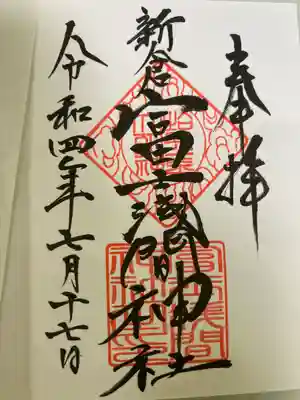 奉拝
新倉富士浅間神社
令和四年七月十七日